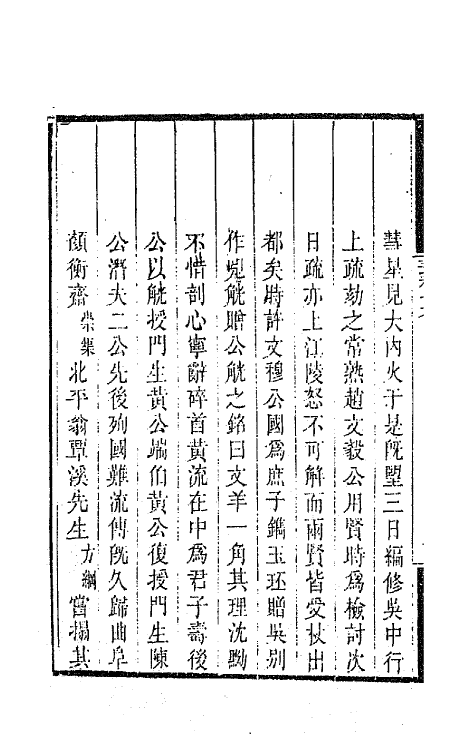 彗星見大內火于是旣朢三日編修吳中行
上疏劾之常熟趙文毅公用賢時爲檢討次
日疏亦上江陵怒不可解而兩賢皆受杖出
都矣時許文穆公國爲庶子鐫玉珓贈吳別
作兕觥贈公觥之銘曰文羊一角其理沈黝
不惜剖心寧辭碎首黃流在中爲君子壽後
公以觥授門生黃公端伯黃公復授門生陳
公潛夫二公先後殉國難流傳旣久歸曲阜
顏衡齋崇槼北平翁覃溪先生方綱嘗搨其